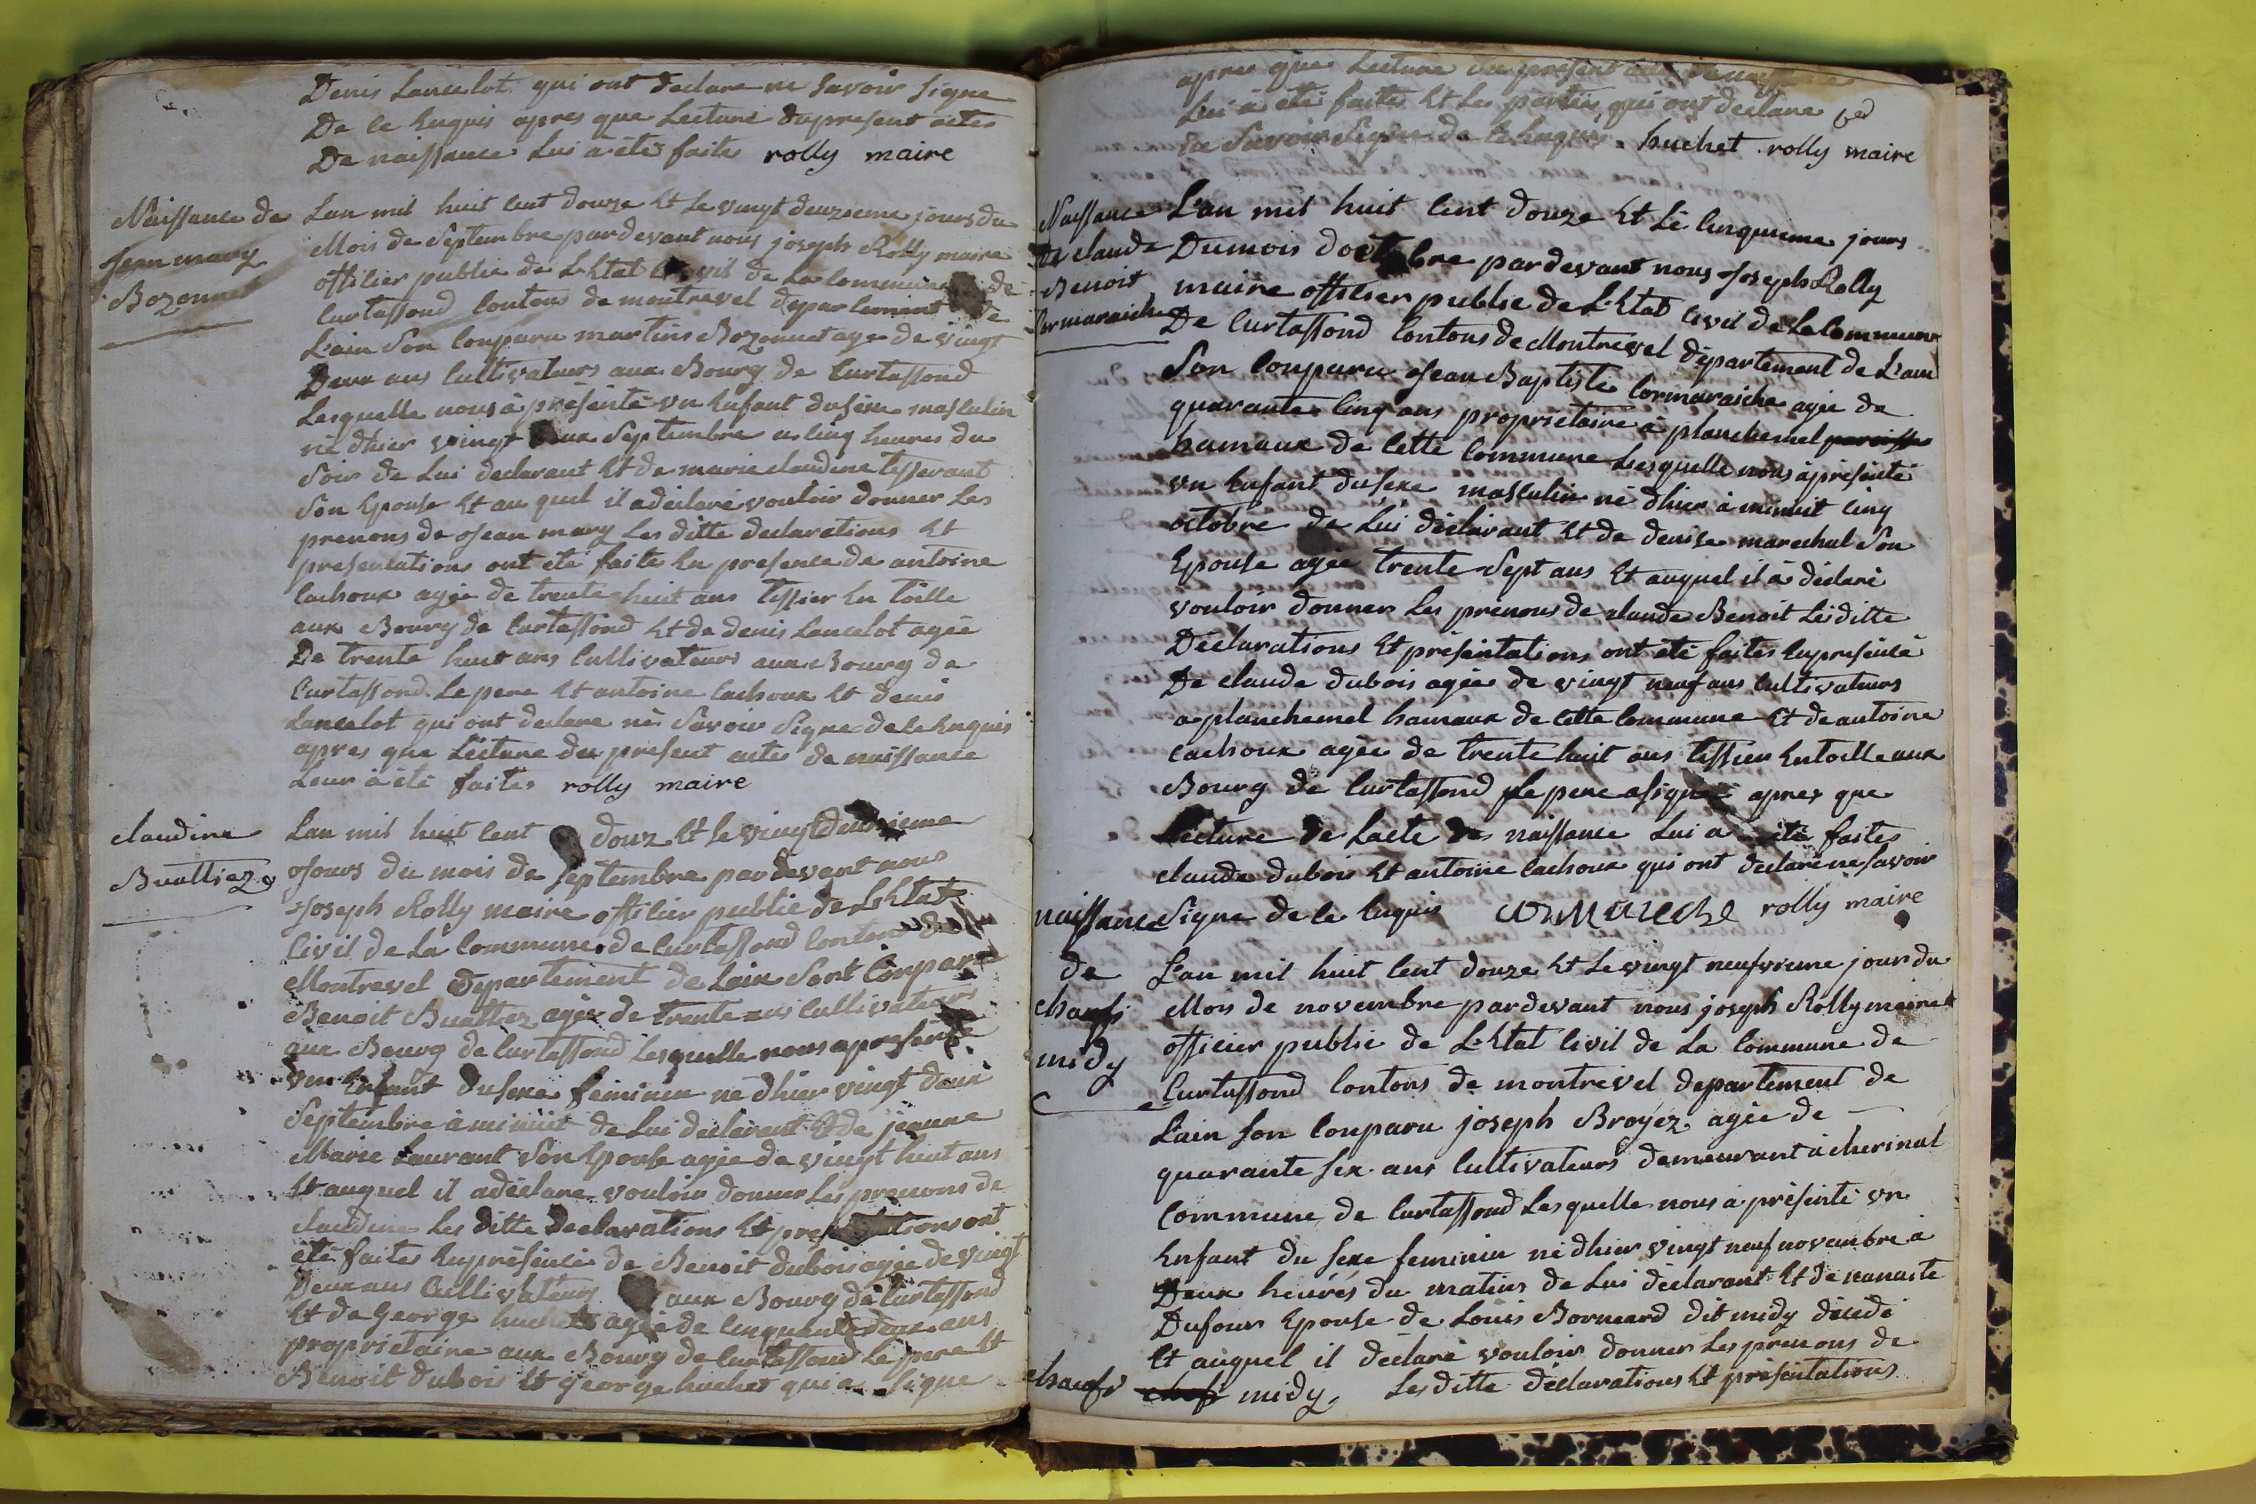 Denis Lancelot qui ont declare ne Savoir signe
De le Enquis apres que Lecture du present actes
De naissance Lui à été faite rolly maire
Naissance de
Jean mary
Bozonnet
Lan mil huit cent douze Et Le vingt deuzieme jours du
Mois de Septembre pardevant nous joseph Rolly maire
officier public de L'Etat Civil de La Commune de
Curtassond Contons de montrevel departement de
L'ain Son Conparu martins Bozonnet age de vingt
Deux ans Cultivateurs aux Bourg de Curtassond
Lesquelle nous à présenté un Enfant du sexe masculin
né dhier vingt deux Septembre a cinq heures du
Soir de Lui declarant Et de marie claudine tisserant
Son Epouse Et au quel il a déclaré vouloir donner Les
prenons de Jean mary Les ditte declarations Et
presentations ont été faite En presence de antoine
Cachoux agée de trente huit ans tissier En toille
aux Bourg de Curtassond Et de denis Lancelot agée
De trente huit ans Cultivateurs aux Bourg de
Curtassond Le pere Et antoine Cachoux Et denis
Lancelot qui ont declare né Savoir Signe de le Enquis
apres que Lécture du présent actes de naissance
Leur à été faites rolly maire
claudine
Buathiez
Lan mil huit cent douz Et le vingt deuxieme
Jours du mois de septembre pardevant nous
Joseph Rolly maire officier public de L'Etat
Civil de La Commune de Curtassond Contons de
Montrevel Departement de Lain Sont Conparu
Benoit Buathez agée de trente ans Cultivateurs
aux Bourg de Curtassond Lesquelle nous a présenté
un Enfant du sexe féminin ne dhier vingt deux
Septembre à minuit de Lui déclarent Et de jeanne
Marie Laurant Son Epouse agée de vingt huit ans
Et auquel il a déclare vouloir donner Les prenons de
claudine Les ditte declarations Et présentations ont
été faites En présence de Benoit dubois agée de vingt
Deux ans Cultivateurs aux Bourg de Curtassond
Et de George huchet agée de cinquante deux ans
proprietaire aux Bourg de Curtassond Le pere Et
Benoit dubois Et George huchet qui a signe
apres que Lecture du présent acte de naissance
Lui à été faite Et Les parties qui ont declare
ne Savoir Signe de le Enquis huchet rolly maire
Naissance
De claude
Benoit
Cormaraiche
L'an mil huit cent douze Et Le cinquieme jours
Dumois doctobre pardevant nous Joseph Rolly
maire officier public de L'Etat Civil de La Commune
De Curtassond Contons de Montrevel département de L'ain
Son Conparu Jean Baptiste Cormaraiche agée de
quarante cinq ans proprietaire à planchemel
hamaux de cette Commune Lesquelle nous à présenté
un Enfant du sexe masculin né dhier à minuit cinq
octobre de Lui déclarant Et de denise marechal Son
Epouse agée trente sept ans Et auquel il à déclaré
vouloir donner Les prénons de claude Benoit Les ditte
Déclarations Et présentations ont été faites En présence
De claude dubois agée de vingt neuf ans Cultivateurs
a planchemel hamaux de cette Commune Et de antoine
cachoux agée de trente huit ans tissier En toille aux
Bourg de Curtassond Le pere a signe apres que
Lecture de L'acte de naissance Lui a été faites
claude dubois Et antoine cachoux qui ont declaré ne savoir
Signe de le Enquis cormareche rolly maire
naissance
de
chanfi
midy
L'an mil huit cent douze Et Le vingt neufvieme jour du
Mois de novembre pardevant nous joseph Rolly maire
officier public de L'Etat Civil de La Commune de
Curtassond Contons de montrevel departement de
L'ain son Conparu joseph Broyez agée de
quarante sex ans Cultivateurs demeurant à cherinal
Commune de Curtassond Lesquelle nous à présenté un
Enfant du sexe feminin né dhier vingt neuf novembre à
Deux heurés du matins de Lui déclarant Et de
Dufour Epouse de Louis Borneard dit midy décédé
Et auquel il déclaré vouloir donner Les prenons de
midy, Les ditte déclarations Et présentations